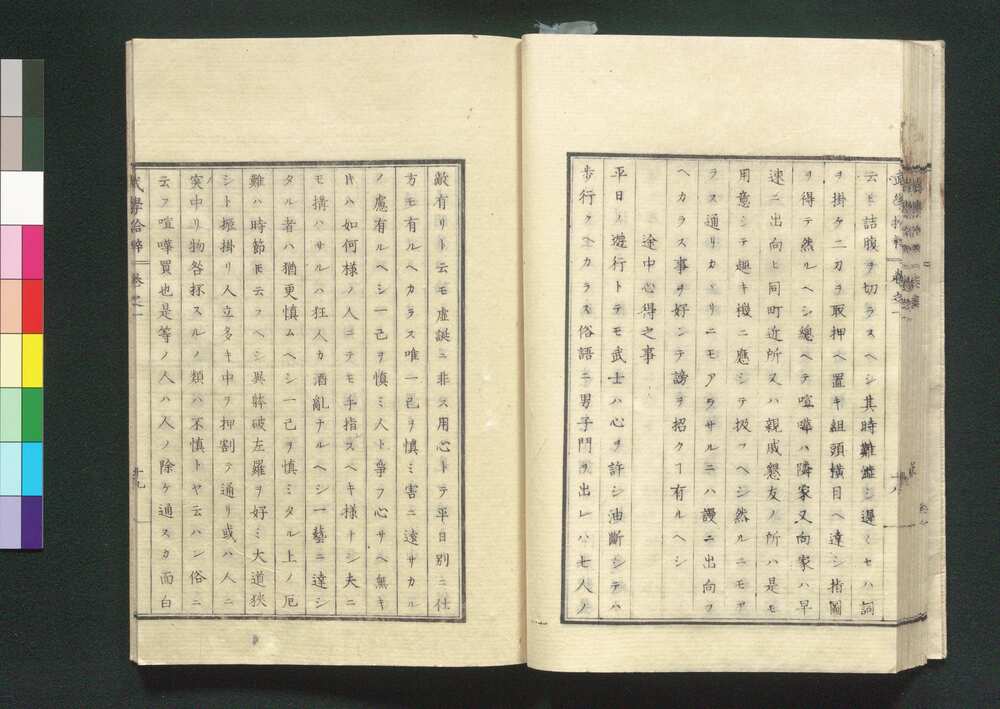 云ヒ詰腹ヲ切ラスヘシ其時難澁シ遲クセハ詞
ヲ掛ケ二刀ヲ取押ヘ置キ組頭横目ヘ達シ指圖
ヲ得テ然ルヘシ總ヘテ喧嘩ハ隣家又向家ハ早
速ニ出向ヒ同町近所又ハ親戚懇友ノ所ハ是モ
用意シテ趣キ機ニ應シテ扱フヘシ然ルニモア
ラス通リカヽリニモアラサルニハ謾ニ出向フ
ヘカラス事ヲ好ンテ謗ヲ招クヿ有ルヘシ
途中心得之事
平日ノ遊行トテモ武士ハ心ヲ許シ油斷シテハ
歩行クヘカラス俗語ニ男子門ヲ出レハ七人ノ
敵有リト云モ虚誕ニ非ス用心トテ平日別ニ仕
方モ有ルヘカラス唯一己ヲ慎ミ害ニ遠サカル
ノ慮有ルヘシ一己ヲ慎ミ人ト爭フ心サヘ無キ
時ハ如何様ノ人ニテモ手指スヘキ様ナシ夫ニ
モ搆ハサルハ狂人カ酒亂ナルヘシ一藝ニ達シ
タル者ハ猶更慎ムヘシ一己ヲ慎ミタル上ノ厄
難ハ時節トモ云フヘシ異躰破左羅ヲ好ミ大道狹
シト振掛リ人立多キ中ヲ押割テ通リ或ハ人ニ
突中リ物咎抔スルノ類ハ不慎トヤ云ハン俗ニ
云フ喧嘩買也是等ノ人ハ人ノ除ケ通スカ面白
武學拾粹
卷之一
十九